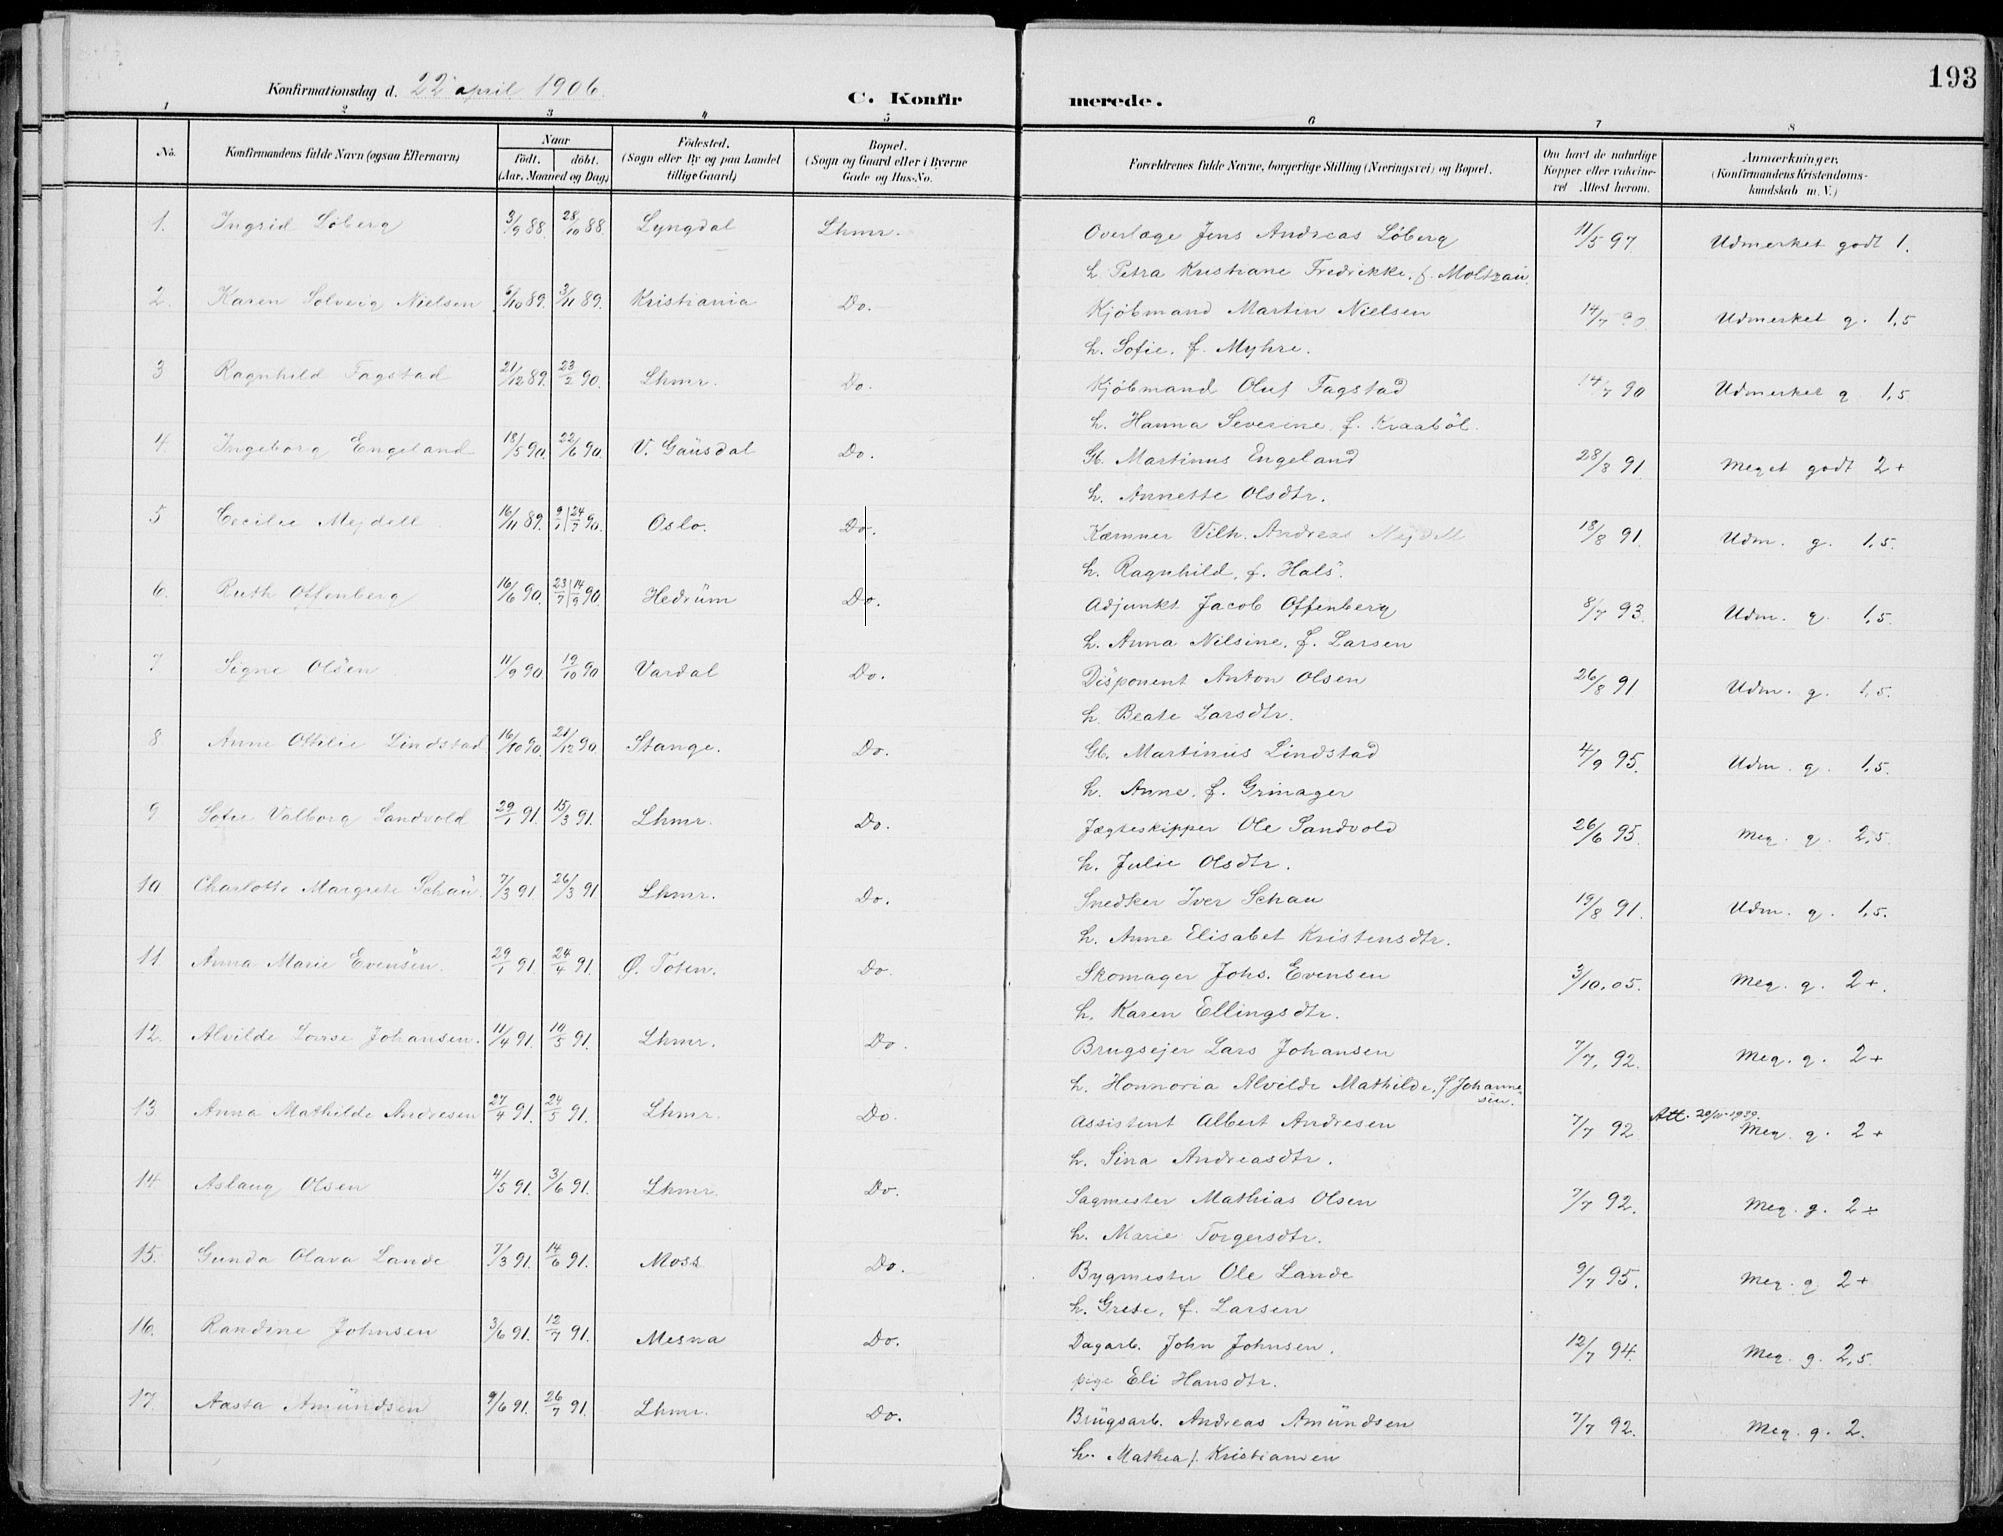 193
Konfirmationsdag d. 22 april 1906.
C. Konfirmerede.
1 2 3 4 5 6 7 8
No.
Konfirmandens fulde Navn (ogsaa Efternavn)
Naar
födt. döbt.
(Aar, Maaned og Dag)
Födested.
(Sogn eller By og paa Landet
tillige Gaard)
Bopæl.
(Sogn og Gaard eller i Byerne
Gade og Hus-No.
Forældrenes fulde Navne, borgerlige Stilling (Næringsvei) og Bopæl.
Om havt de naturlige
Kopper eller vakcine-
ret Attest herom.
Anmærkninger.
(Konfirmandens Kristendoms-
kundskab m. V.)
1. Ingrid Löberg 3/9 88. 28/10 88. Lyngdal Lhmr. Overlæge Jens Andreas Löberg 11/5 97 Udmerket godt 1.
h. Petra Kristiane Fredrikke, f. Moltzau.
2. Karen Solveig Nielsen 6/10 89. 3/11 89. Kristiania Do. Kjöbmand Martin Nielsen 14/7 90 Udmerket g. 1,5
h. Sofie, f. Myhre.
3 Ragnhild Fagstad 21/12 89. 23/2 90. Lhmr. Do. Kjöbmand Oluf Fagstad 14/7 90 Udmerket g. 1,5.
h. Hanna Severine, f. Kraaböl.
4 Ingeborg Engeland 18/5 90. 22/6 90. V. Gausdal Do. Gb. Martinus Engeland 28/8 91 Meget godt 2+
h. Annette Olsdtr.
5 Cecilie Mejdell 16/11 89. 9/1 | 24/7 90. Oslo. Do. Kæmner Vilh. Andreas Mejdell 18/8 91. Udm. g. 1,5.
h. Ragnhild, f. Hals.
6. Ruth Offenberg 16/6 90. 23/7 | 14/9 90. Hedrum Do. Adjunkt Jacob Offenberg 8/7 93. Udm. g. 1,5.
h. Anna Nilsine, f. Larsen
7 Signe Olsen 11/9 90. 19/10 90 Vardal Do. Disponent Anton Olsen 26/8 91 Udm. g. 1,5.
h. Beate Larsdtr.
8 Anne Othilie Lindstad 16/10 90. 21/12 90. Stange. Do. Gb. Martinus Lindstad 4/9 95. Udm. g. 1,5.
h. Anne, f. Grinager
9 Sofie Valborg Sandvold 29/1 91. 15/3 91. Lhmr. Do. Jægteskipper Ole Sandvold 26/6 95. Meg. g. 2,5.
h. Julie Olsdtr.
10 Charlotte Margrete Schau. 7/3 91. 26/3 91 Lhmr. Do. Snedker Iver Schau 19/8 91. Udm. g. 1,5.
h. Anne Elisabet Kristensdtr.
11 Anna Marie Evensen. 29/1 91. 24/4 91. Ø. Toten. Do. Skomager Johs. Evensen 3/10.05. Meg. g. 2+.
h. Karen Ellingsdtr.
12. Alvilde Lovise Johansen. 11/4 91. 10/5 91. Lhmr. Do. Brugsejer Lars Johansen 7/7, 92. Meg. g. 2+
h. Honnoria Alvilde Mathilde, f. Johanne
sen.
13. Anna Mathilde Andresen 27/4 91. 24/5 91. Lhmr. Do. Assistent Albert Andresen 7/7 92 Att. 20/IV-1939. Meg. g. 2+
h. Sina Andreasdtr.
14 Aslaug Olsen 4/5 91. 3/6 91. Lhmr. Do. Sagmester Mathias Olsen 7/7 92. Meg. g. 2÷
h. Marie Torgersdtr.
15. Gunda Olava Lande 7/3 91. 14/6 91. Moss Do. Bygmester Ole Lande 9/7 95. Meg. g 2+
h. Grete, f. Larsen
16. Randine Johnsen 3/6 91. 12/7 91. Mesna Do. Dagarb. John Johnsen. 12/7 94. Meg. g. 2,5.
pige Eli Hansdtr.
17. Aasta Amundsen 9/6 91. 26/7 91. Lhmr. Do. Brugsarb. Andreas Amundsen 7/7 92. Meg. g. 2.
h. Mathea f. Kristiansen